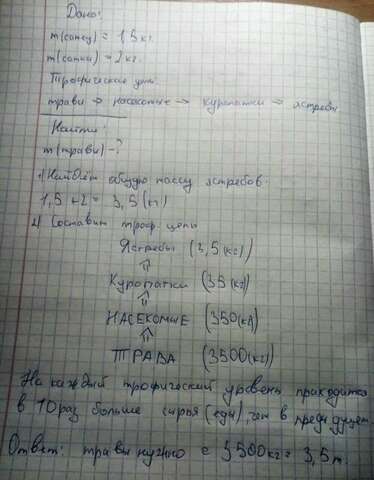 Дано:
m(самец) = 1,5 кг.
m(самки) = 2 кг.
Трофические цепи
травы → насекомые → куропатки → ястребы
Найти:
m(травы) - ?
1) Найдём общую массу ястребов:
1,5 + 2 = 3,5 (кг)
2) Составим троф. цепь
Ястребы (3,5(кг))
⇑
Куропатки (35(кг))
⇑
НАСЕКОМЫЕ (350(кг))
⇑
ТРАВА (3500(кг))
На каждый трофический уровень приходится
в 10 раз больше сырья (еды), чем в предыдущем.
Ответ: травы нужно с 3500кг = 3,5 т.